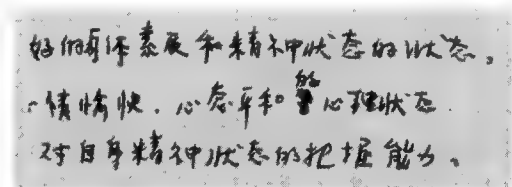 好的身体素质和精神状态的状态,
情绪愉快.心态平和的心理状态.
对自身精神状态的把握能力、